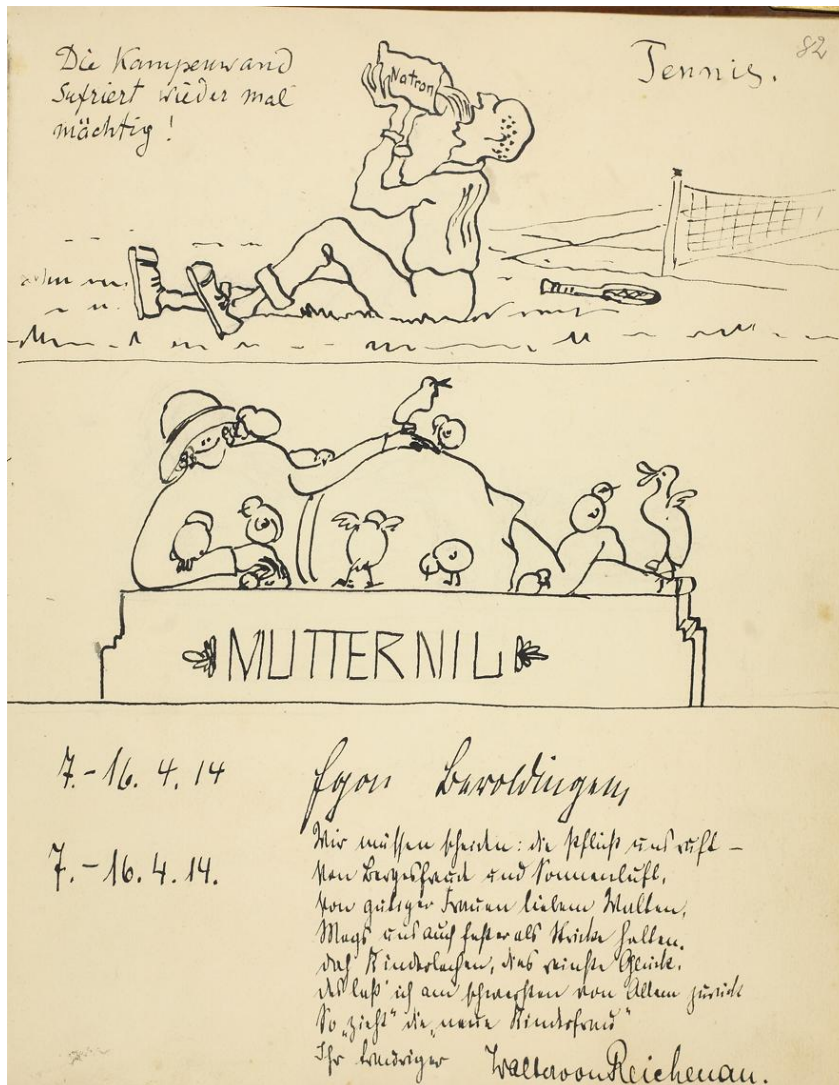 82
Die Kampenwand
Sufriert wieder mal
mächtig!
Tennis.
Natron
MUTTER NIL
7.-16.4.14
Egon Beroldingen
7.-16.4.14.
Wir müssen scheiden: die Pflicht uns ruft –
Von Bergesfreud und Sonnenluft,
Von gütiger Frauen liebem Walten,
Mags uns auch fester als Stricke halten.
Das Kinderlachen, dies reinste Glück,
das laß' ich am schwersten von Allem zurück
So „zieht" die „neue Kinderfrau"
Ihr trauriger Walter von Reichenau.